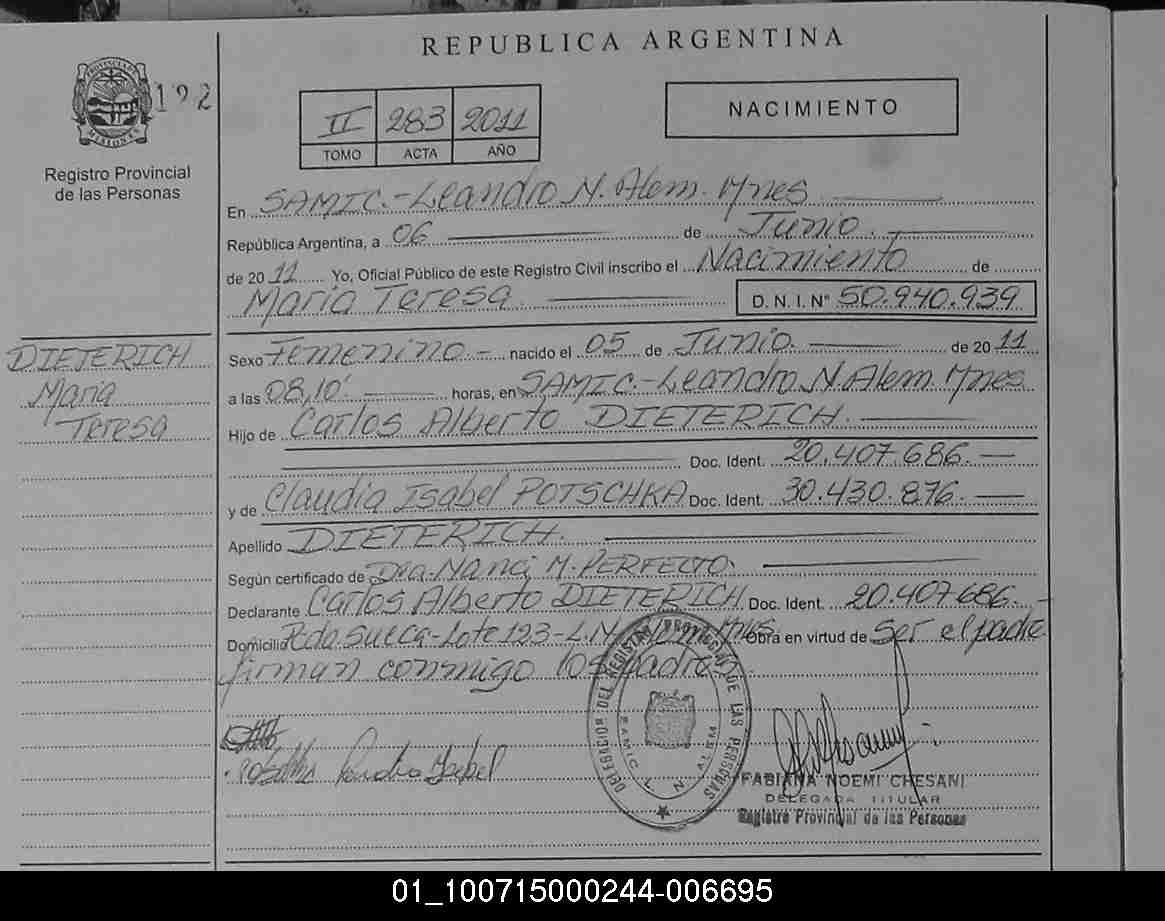 REPUBLICA ARGENTINA
PROVINCIA DE MISIONES
192
Registro Provincial
de las Personas
II 283 2011
TOMO ACTA AÑO
NACIMIENTO
En SAMIC.-Leandro N. Alem. Mnes
República Argentina, a 06 de Junio.
de 2011 Yo, Oficial Público de este Registro Civil inscribo el Nacimiento de
María Teresa D. N. I. N° 50.940.939
DIETERICH
María
Teresa
Sexo Femenino - nacido el 05 de Junio. de 2011
a las 08,10' horas, en SAMIC.-Leandro N. Alem. Mnes
Hijo de Carlos Alberto DIETERICH.
Doc. Ident. 20.407.686.
y de Claudia Isabel POTSCHKA Doc. Ident. 30.430.876.
Apellido DIETERICH.
Según certificado de Dra. Nanci M. PERFECTO.
Declarante Carlos Alberto DIETERICH Doc. Ident. 20.407.686.
Domicilio Pcda Sueca-Lote 123-L.N. Alem Mnes Obra en virtud de Ser el padre
firman conmigo los padres
DELEGACION DEL REGISTRO PROVINCIAL DE LAS PERSONAS
SAMIC L. N. ALEM
FABIANA NOEMI CHESANI
DELEGADA TITULAR
Registro Provincial de las Personas
01_100715000244-006695